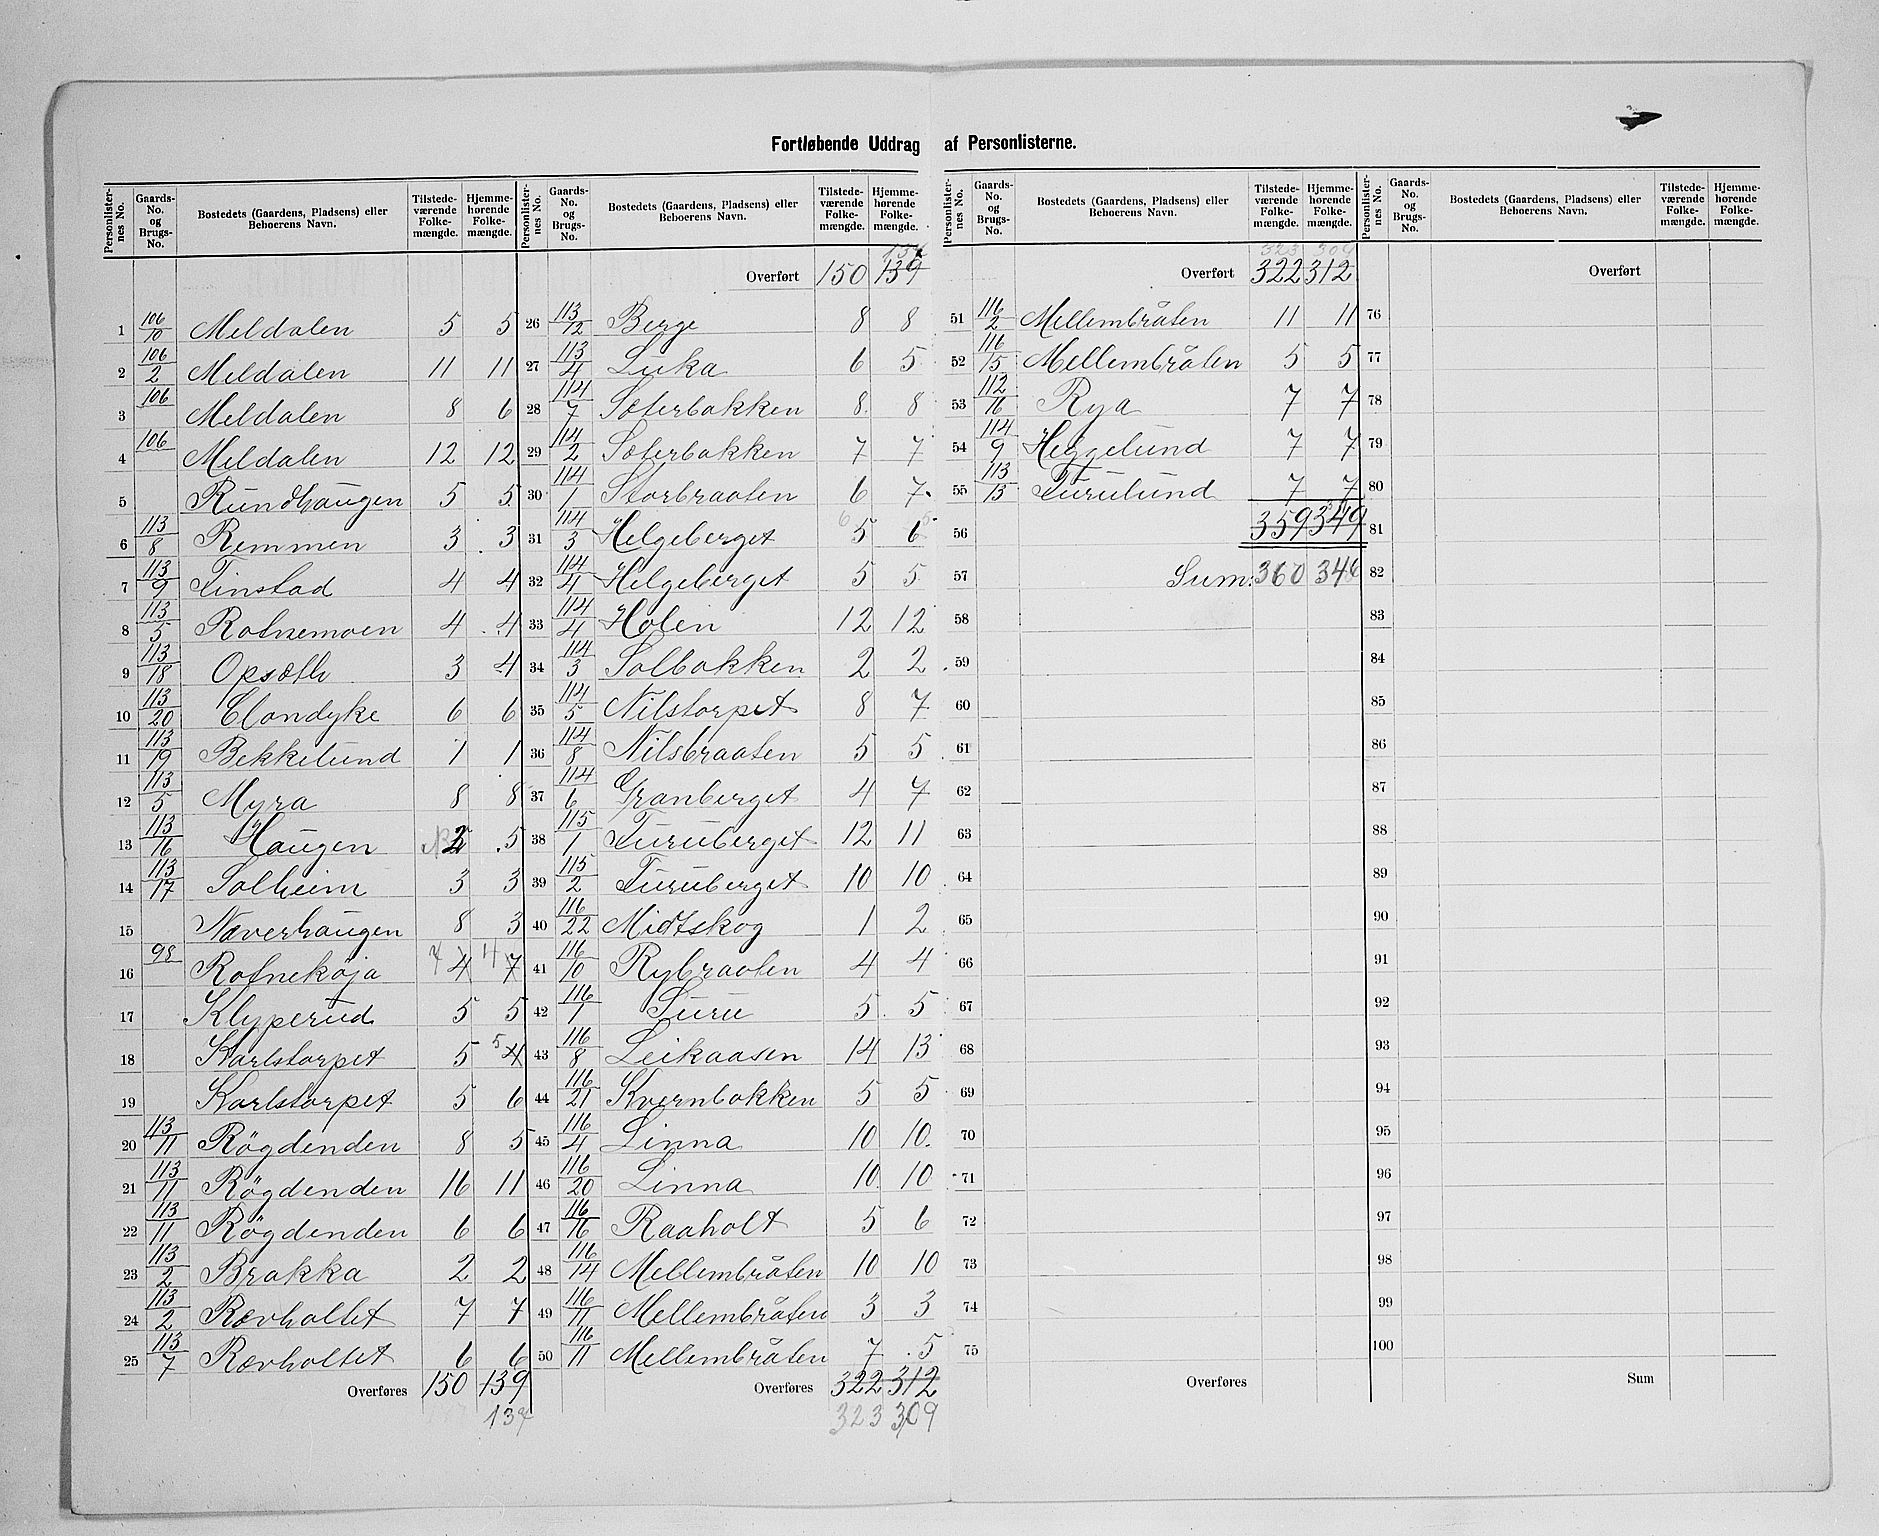 Fortløbende Uddrag af Personlisterne.
Personlister-nes No. | Gaards-No. og Brugs-No. | Bostedets (Gaardens, Pladsens) eller Beboerens Navn. | Tilstede-værende Folke-mængde. | Hjemme-hørende Folke-mængde.
1 106/10 Meldalen 5 5
2 106/2 Meldalen 11 11
3 106 Meldalen 8 6
4 106 Meldalen 12 12
5 Rundhaugen 5 5
6 113/8 Remmen 3 3
7 113/9 Finstad 4 4
8 113/5 Rotnemoen 4 4
9 113/18 Opsæth 3 4
10 113/20 Clondyke 6 6
11 113/19 Bekkelund 1 1
12 113/5 Myra 8 8
13 113/16 Haugen 5
14 113/17 Solheim 3 3
15 Næverhaugen 8 3
16 98 Rotnekøja 7 4 4 7
17 Klyperud 5 5
18 Karlstorpet 5 5 4
19 Karlstorpet 5 6
20 113/11 Rögdenden 8 5
21 113/11 Rögdenden 16 11
22 113/11 Rögdenden 6 6
23 113/2 Brakka 2 2
24 113/2 Rævholtet 7 7
25 113/7 Rævholtet 6 6
Overføres 150 139
137
Personlister-nes No. | Gaards-No. og Brugs-No. | Bostedets (Gaardens, Pladsens) eller Beboerens Navn. | Tilstede-værende Folke-mængde. | Hjemme-hørende Folke-mængde.
137
Overført 150 139
26 113/12 Berge 8 8
27 113/4 Luka 6 5
28 114/7 Sæterbakken 8 8
29 114/2 Sæterbakken 7 7
30 114/1 Storbraaten 6 7
31 114/3 Helgeberget 6 5 6
32 114/4 Helgeberget 5 5
33 114/4 Holen 12 12
34 114/3 Solbakken 2 2
35 114/5 Nilstorpet 8 7
36 114/8 Nilsbraaten 5 5
37 114/6 Granberget 4 7
38 115/1 Furuberget 12 11
39 115/2 Furuberget 10 10
40 116/22 Midtskog 1 2
41 116/10 Rybraaten 4 4
42 116/1 Luru 5 5
43 116/8 Leikaasen 14 13
44 116/21 Kvernbakken 5 5
45 116/4 Linna 10 10
46 116/20 Linna 10 10
47 116/16 Raaholt 5 6
48 116/14 Mellembråten 10 10
49 116/11 Mellembråten 3 3
50 116/11 Mellembråten 7 5
Overføres 322 312
323 309
Personlister-nes No. | Gaards-No. og Brugs-No. | Bostedets (Gaardens, Pladsens) eller Beboerens Navn. | Tilstede-værende Folke-mængde. | Hjemme-hørende Folke-mængde.
323 309
Overført 322 312
51 116/2 Mellembråten 11 11
52 116/15 Mellembråten 5 5
53 112/16 Rya 7 7
54 114/9 Heggelund 7 7
55 113/13 Furulund 7 7
56 359 349
57 Sum: 360 346
58
59
60
61
62
63
64
65
66
67
68
69
70
71
72
73
74
75
Overføres
Personlister-nes No. | Gaards-No. og Brugs-No. | Bostedets (Gaardens, Pladsens) eller Beboerens Navn. | Tilstede-værende Folke-mængde. | Hjemme-hørende Folke-mængde.
Overført
76
77
78
79
80
81
82
83
84
85
86
87
88
89
90
91
92
93
94
95
96
97
98
99
100
Sum